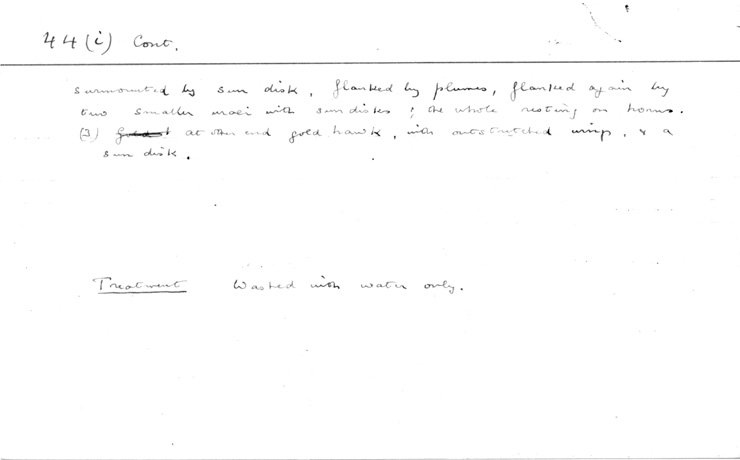 44(i) Cont.
surmounted by sun disk, flanked by plumes, flanked again by
two smaller uraei with sun disks ; the whole resting on horns.
(3) at other end gold hawk, with outstretched wings, & a
sun disk.
Treatment Washed with water only.